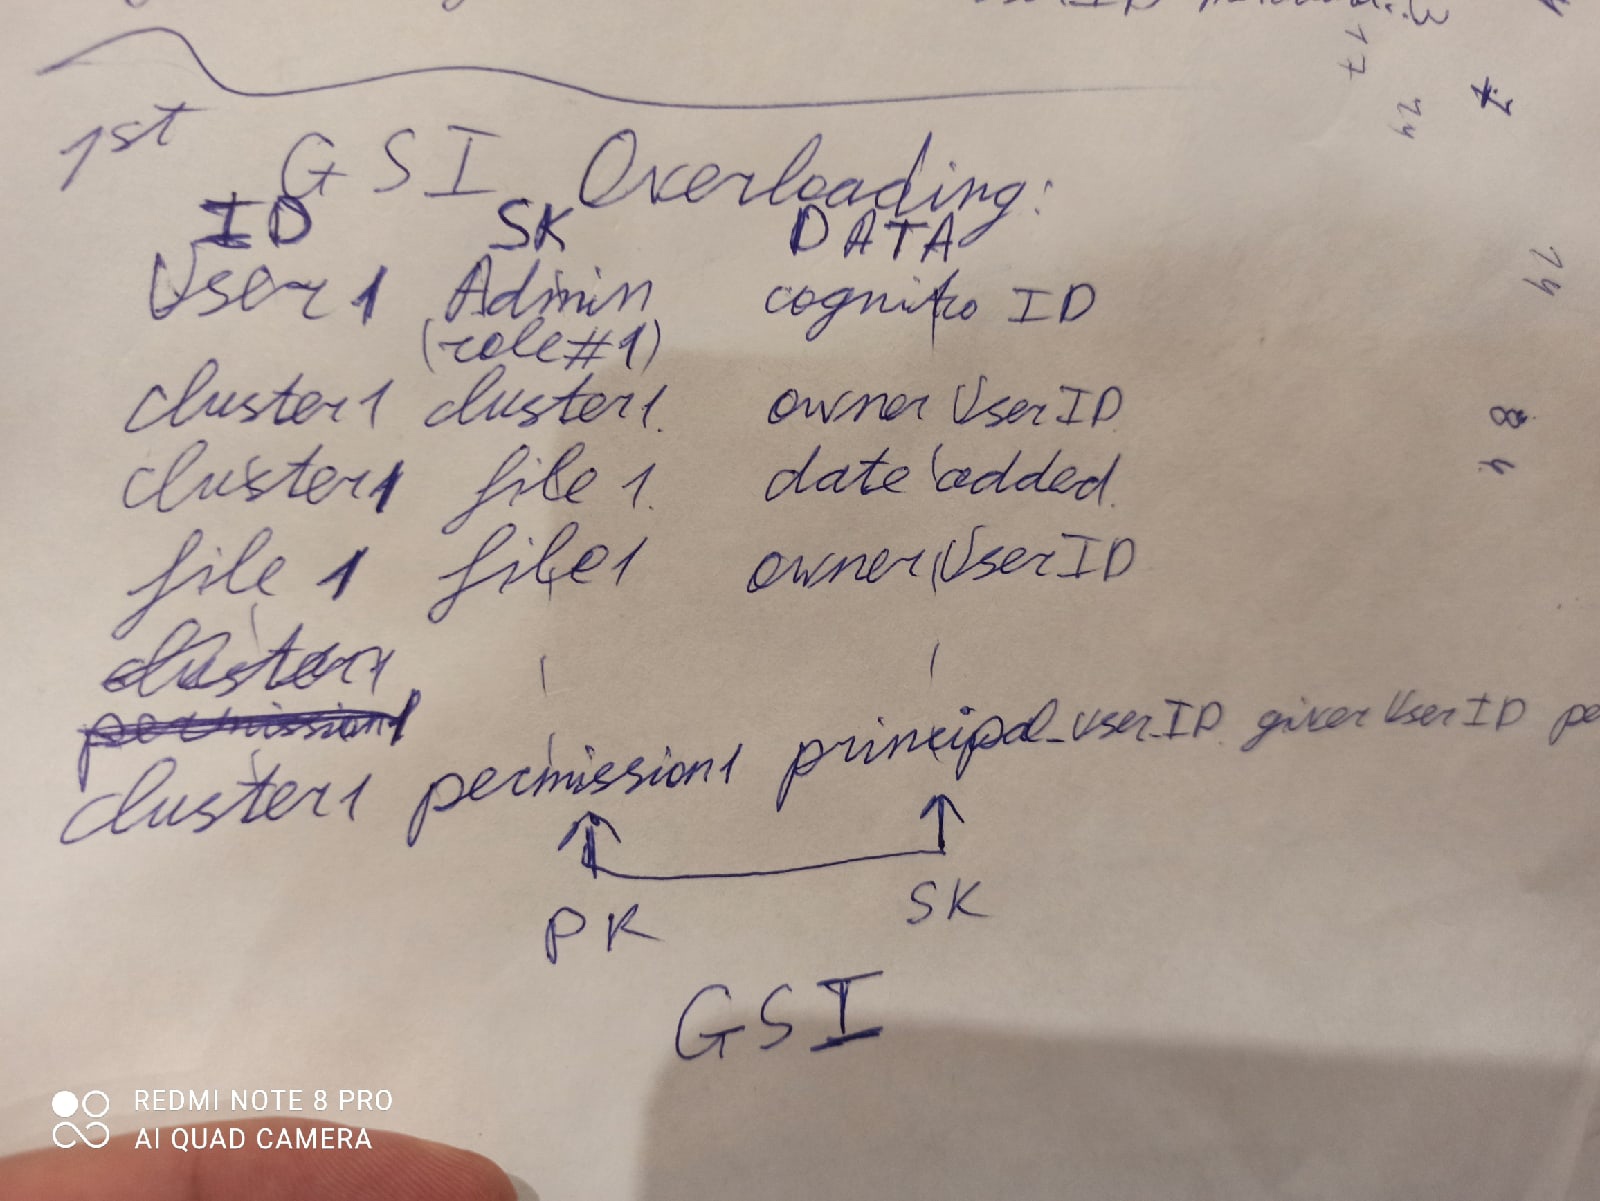 1st
GSI Overloading:
ID SK DATA
User 1 Admin cognito ID
(role#1)
cluster1 cluster1. owner UserID
cluster1 file 1. date added.
file 1 file1 owner UserID
cluster1
permission1
cluster1 permission1 principal_userID giver UserID pe
PK SK
GSI
REDMI NOTE 8 PRO
AI QUAD CAMERA
17
24
7
14
8
4